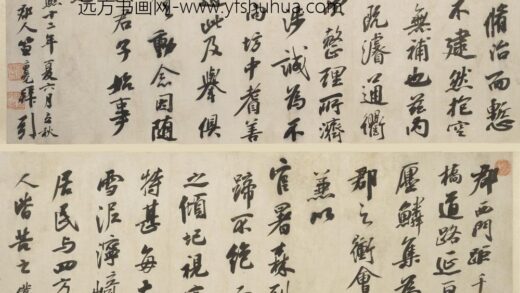 远方书画网-: www.yfshuhua.com
脩治而慙
不逮然抱空
無補也茲丙
既濬通衢
整理所濟
涉誠為不
兩坊中耆善
此及舉俱
動念因隨
君子始事
熙十二年夏六月立秋
郡人笪重光引
郡西門距千
橋道路延百
廛鱗集為
郡之衝會
兼以
官署森列
蹄不絕
之傾圮視
特甚每
雪泥濘崎
居民與四方
人皆苦之